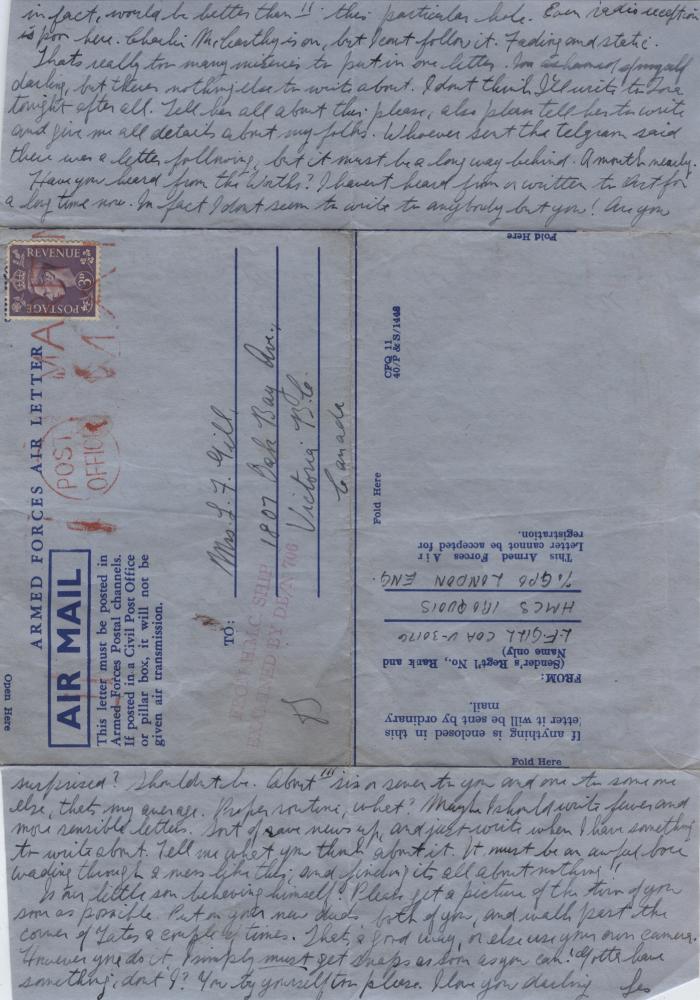 in fact, would be better than this particular hole. Even radio reception
is poor here. Charlie McCarthy is on, but I cant follow it. Fading and static.
Thats really too many miseries to put in one letter. Im ashamed of myself
darling, but theres nothing else to write about. I dont think I'll write to
tonight after all. Tell her all about this please, also please tell her to write
and give me all details about my folks. Whoever sent the telgram said
there was a letter following, but it must be a long way behind. A month nearly.
Have you heard from the Worths? I havent heard from or written to for
a long time now. In fact I dont seem to write to anybody but you! Are you
REVENUE
3D
POSTAGE
POST
OFFICE
ARMED FORCES AIR LETTER
AIR MAIL
This letter must be posted in
Armed Forces Postal channels.
If posted in a Civil Post Office
or pillar box, it will not be
given air transmission.
Open Here
TO:
Mrs. L. F. Gill,
1807 Oak Bay Ave.,
Victoria B.C.
Canada
FROM H.M.C. SHIP
EXAMINED BY DB/N 706
Fold Here
CFQ 11
40/P & S/1448
Fold Here
This Armed Forces Air
Letter cannot be accepted for
registration.
FROM:
(Sender's Regt'l No., Rank and
Name only)
L.F. GILL CDA V-30176
HMCS IROQUOIS
% GPO LONDON ENG.
If anything is enclosed in this
letter it will be sent by ordinary
mail.
Fold Here
surprised? Shouldnt be. About six or seven to you and one to someone
else, thats my average. Proper routine, what? Maybe I should write fewer and
more sensible letters. Sort of save news up, and just write when I have something
to write about. Tell me what you think about it. It must be an awful bore
wading through a mess like this, and finding its all about nothing!
Is our little son behaving himself? Please get a picture of the two of you
soon as possible. Put on your new duds, both of you, and walk past the
corner of Yates a couple of times. Thats a good way, or else use your own camera.
However you do it I simply must get snaps as soon as you can! Gotta have
something, dont I? You try yourself too please. I love you darling Les